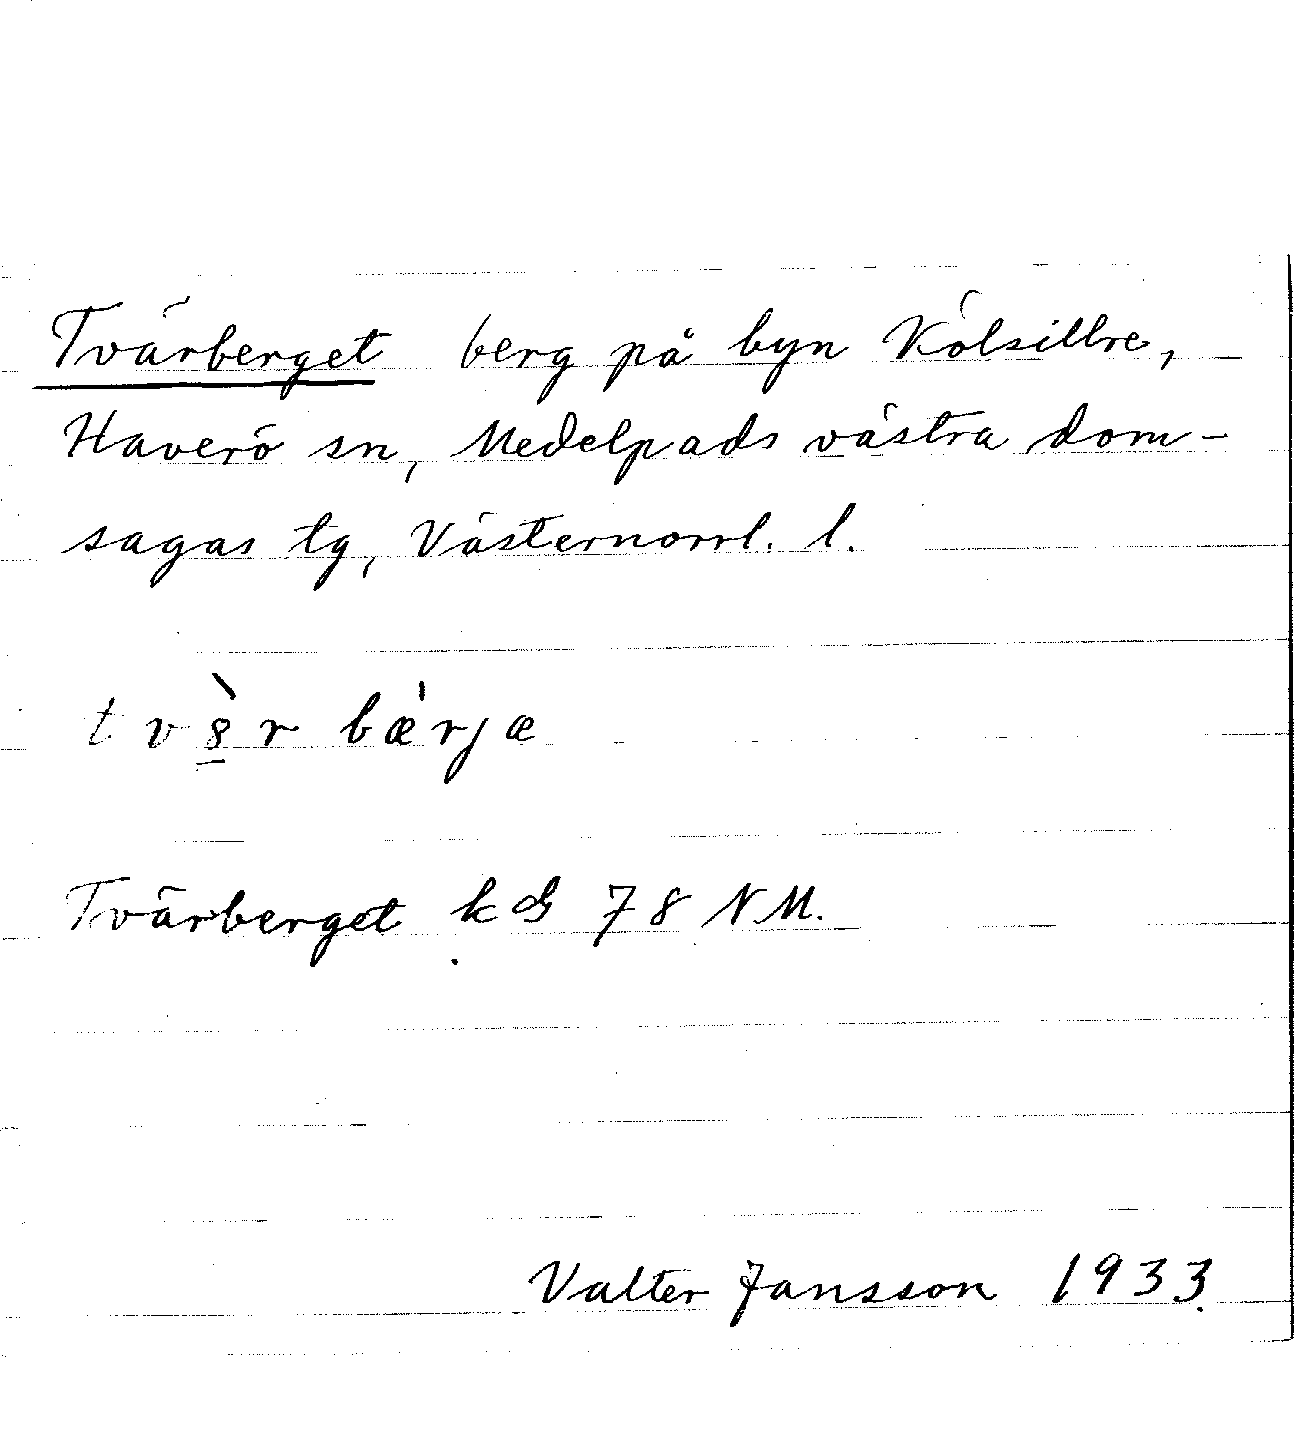 Tvärberget berg på byn Kölsillre,
Haverö sn, Medelpads västra dom-
sagas tg, Västernorrl. l.
bæ̀rjæ
Tvärberget 78 NM.
Valter Jansson 1933.